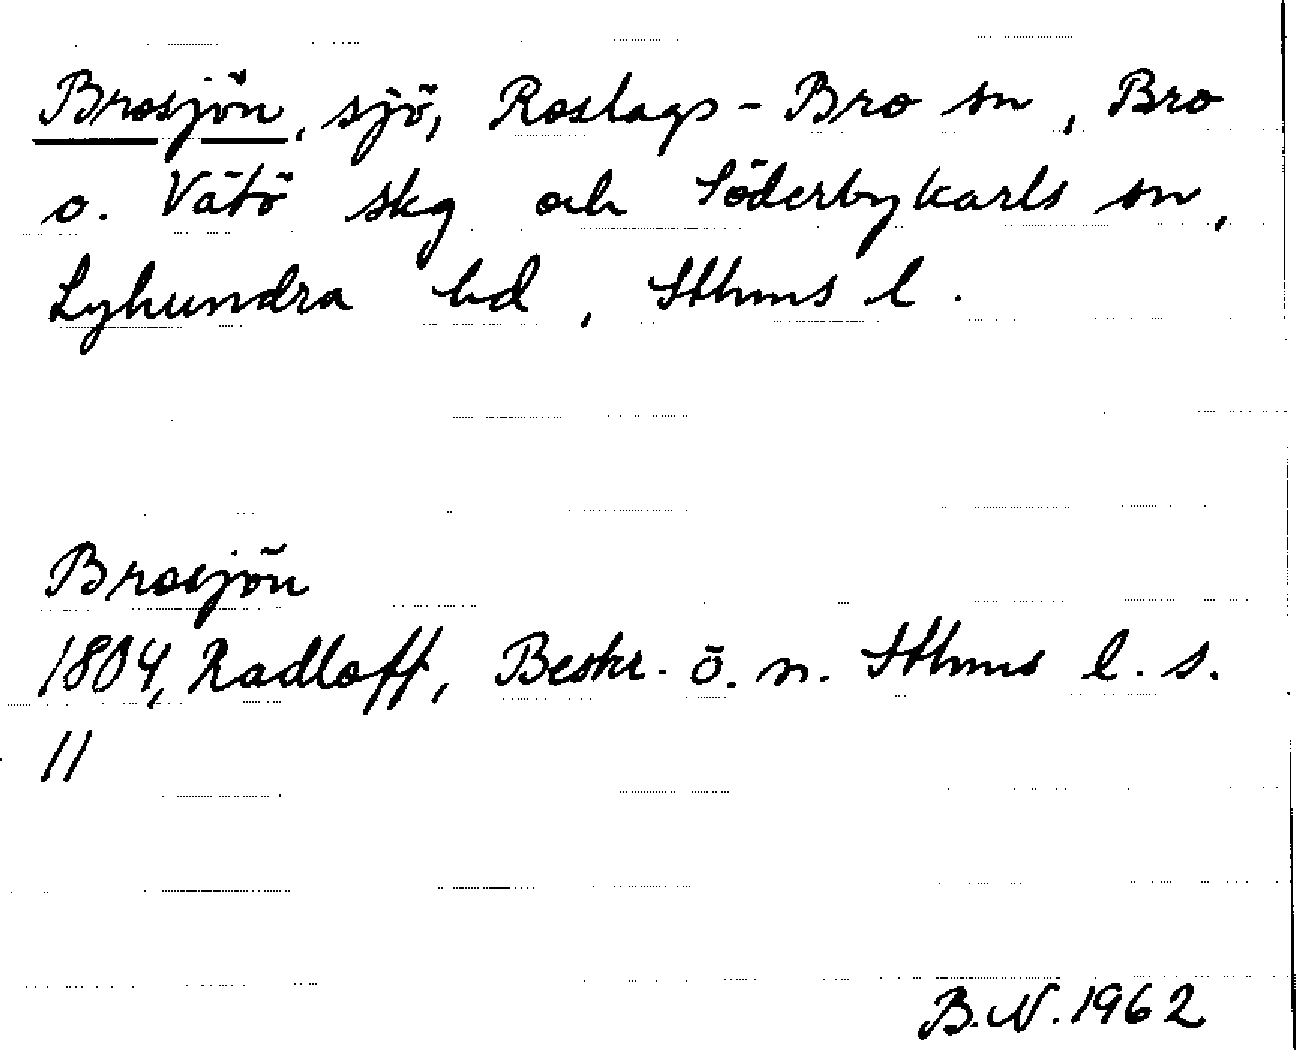 Brosjön, sjö, Roslags-Bro sn, Bro
o. Vätö skg och Söderbykarls sn,
Lyhundra hd, Sthms l.
Brosjön
1804, Radloff, Beskr. ö. n. Sthms l. s.
11
B.N. 1962